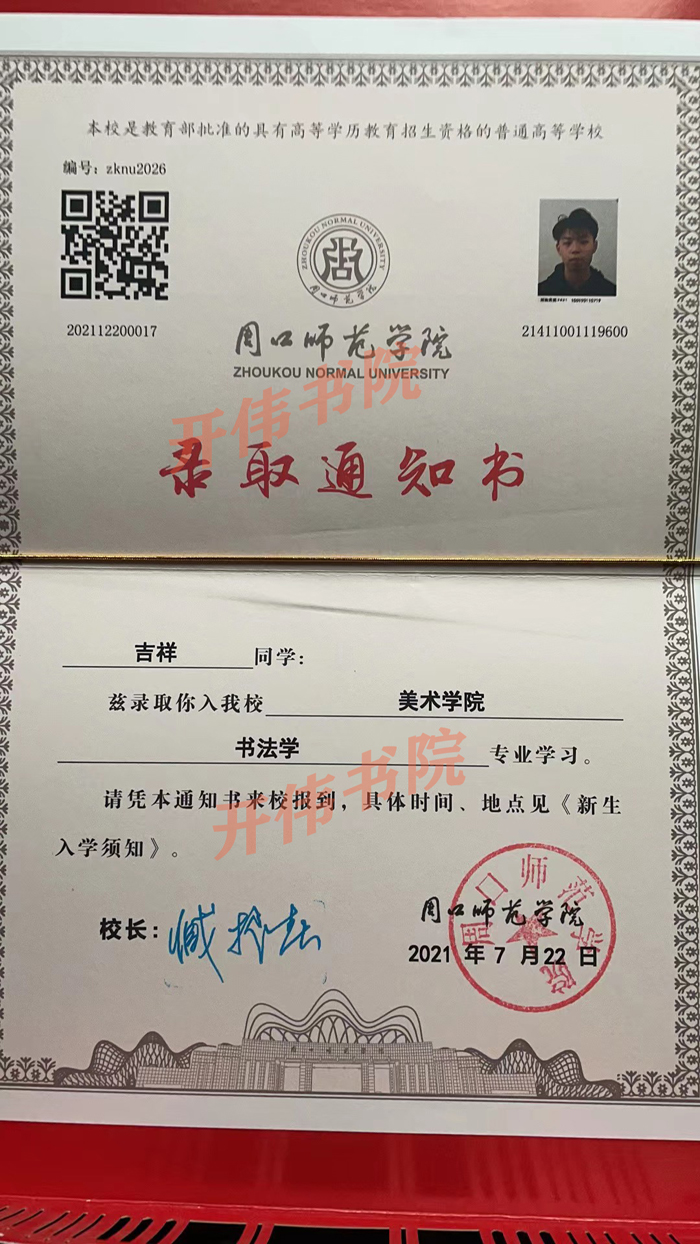 本校是教育部批准的具有高等学历教育招生资格的普通高等学校
编号：zknu2026
ZHOUKOU NORMAL UNIVERSITY
周口师范学院
202112200017
21411001119600
周口师范学院
ZHOUKOU NORMAL UNIVERSITY
开伟书院
录取通知书
吉祥同学：
兹录取你入我校美术学院
书法学专业学习。
开伟书院
请凭本通知书来校报到，具体时间、地点见《新生
入学须知》。
周口师范学院
校长：
周口师范学院
2021 年 7 月 22 日